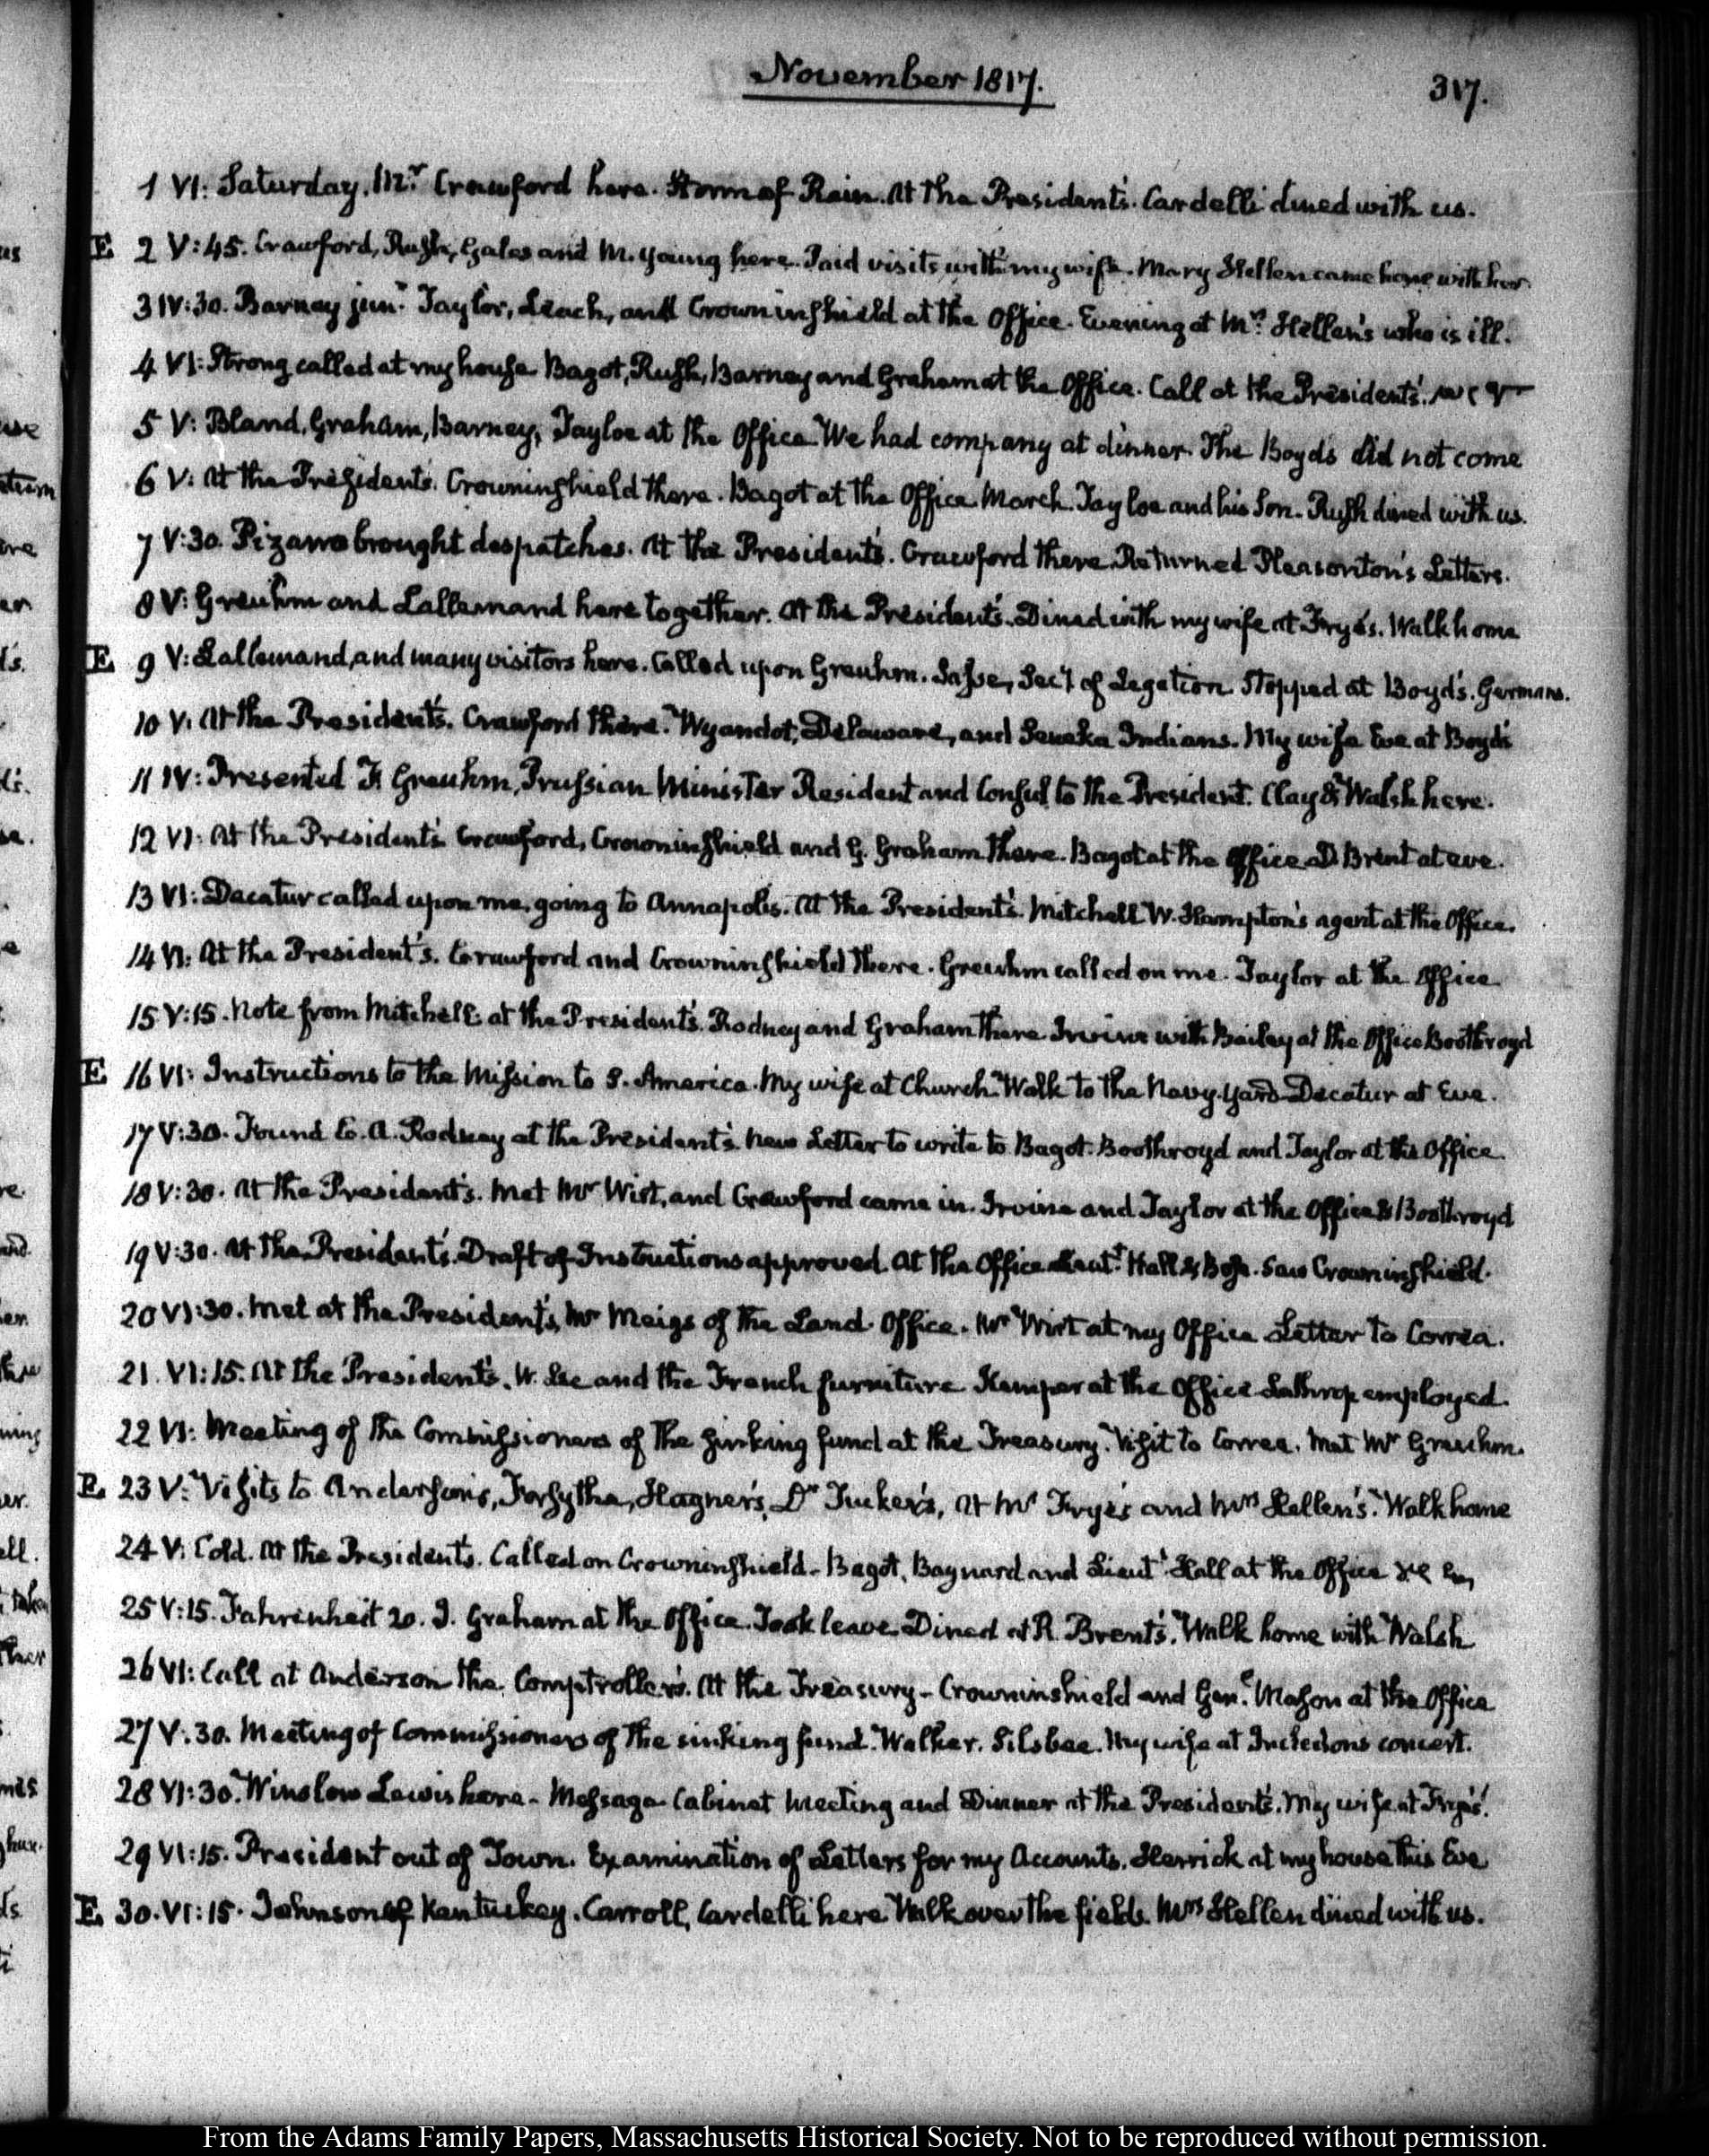 November 1817.
317.
1 VI: Saturday. Mr. Crawford here. Storm of Rain. At the President's. Cardelli dined with us.
E 2 V:45. Crawford, Rush, Gales and M. Young here. Paid visits with my wife. Mary Hellen came home with her.
3 IV:30. Barney junr. Taylor, Leach, and Crowninshield at the Office. Evening at Mrs. Hellen's who is ill.
4 VI: Strong called at my house Bagot, Rush, Barney and Graham at the Office. Call at the President's.
5 V: Bland, Graham, Barney, Tayloe at the Office. We had company at dinner. The Boyds did not come
6 V: At the President's. Crowninshield there. Bagot at the Office March. Tayloe and his Son. Rush dined with us.
7 V:30. Pizarro brought despatches. At the President's. Crawford there. Returned Pleasonton's Letters.
8 V: Greuhm and Lallemand here together. At the President's. Dined with my wife at Frye's. Walk home
E 9 V: Lallemand, and many visitors here. Called upon Greuhm. Secy. of Legation. Stopped at Boyd's. Germans.
10 V. At the President's. Crawford there. Wyandot, Delaware, and Seneka Indians. My wife Eve at Boyd's
11 IV: Presented F. Greuhm, Prussian Minister Resident and Consul to the President. Clay & Walsh here.
12 VI: At the President's Crawford, Crowninshield and G. Graham there. Bagot at the Office D. Brent at eve.
13 VI: Decatur called upon me, going to Annapolis. At the President's. Mitchell W. Hampton's agent at the Office.
14 VI: At the President's. Crawford and Crowninshield there. Greuhm called on me. Taylor at the Office
15 V:15. Note from Mitchell at the President's. Rodney and Graham there Irvine with Bailey at the Office Boothroyd
E 16 VI: Instructions to the Mission to S. America. My wife at Church. Walk to the Navy-yard Decatur at Eve.
17 V:30. Found C. A. Rodney at the President's. New Letter to write to Bagot. Boothroyd and Taylor at the Office.
18 V:30. At the President's. Met Mr Wirt, and Crawford came in. Irvine and Taylor at the Office & Boothroyd
19 V:30. At the President's. Draft of Instructions approved. At the Office Lieutt. Hall & Boss. Saw Crowninshield.
20 VI:30. Met at the President's, Mr Meigs of the Land Office. Mr Wirt at my Office Letter to Correa.
21. VI:15. At the President's. W. Lee and the French furniture Kemper at the Office Lathrop employed.
22 VI: Meeting of the Commissioners of the sinking fund at the Treasury. Visit to Correa. Met Mr Greuhm.
E 23 V: Visits to Anderson's, Forsythe, Hagner's, Dr Tucker's, at Mr Frye's and Mrs Hellen's. Walk home
24 V: Cold. At the President's. Called on Crowninshield. Bagot, Baynard and Lieutt. Hall at the Office
25 V:15. Fahrenheit 20. J. Graham at the Office. Took leave. Dined at R. Brent's. Walk home with Walsh
26 VI: Call at Anderson the Comptroller's. At the Treasury - Crowninshield and Genl. Mason at the Office
27 V:30. Meeting of Commissioners of the sinking fund. Walker. Silsbee. My wife at Incledon's concert.
28 VI:30. Winslow Lewis here - Message Cabinet Meeting and Dinner at the President's. My wife at Frye's.
29 VI:15. President out of Town. Examination of Letters for my Accounts. Herrick at my house this Eve
E 30. VI:15. Johnson of Kentuckey. Carroll, Cardelli here Walk over the fields. Mrs Hellen dined with us.
From the Adams Family Papers, Massachusetts Historical Society. Not to be reproduced without permission.